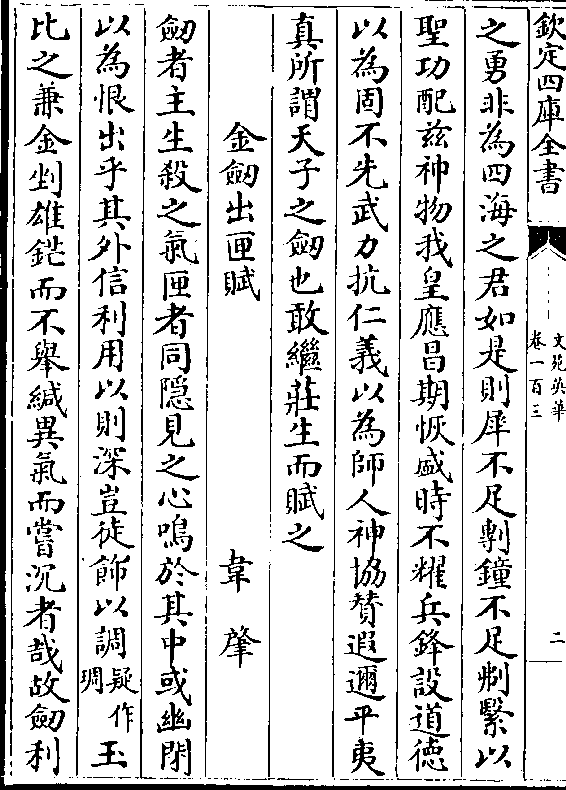 欽定四庫全書
文苑英華
卷一百三
二
之勇非為四海之君如是則犀不足剸鐘不足刜繄以
聖功配兹神物我皇應昌期恢盛時不耀兵鋒設道徳
以為固不先武力抗仁義以為師人神協賛遐邇平夷
真所謂天子之劒也敢繼莊生而賦之
金劒出匣賦
韋肇
劒者主生殺之氣匣者同隠見之心鳴於其中或幽閉
以為恨出乎其外信利用以則深豈徒飾以調疑作琱玉
比之兼金剉雄鋩而不舉緘異氣而嘗沉者哉故劒利